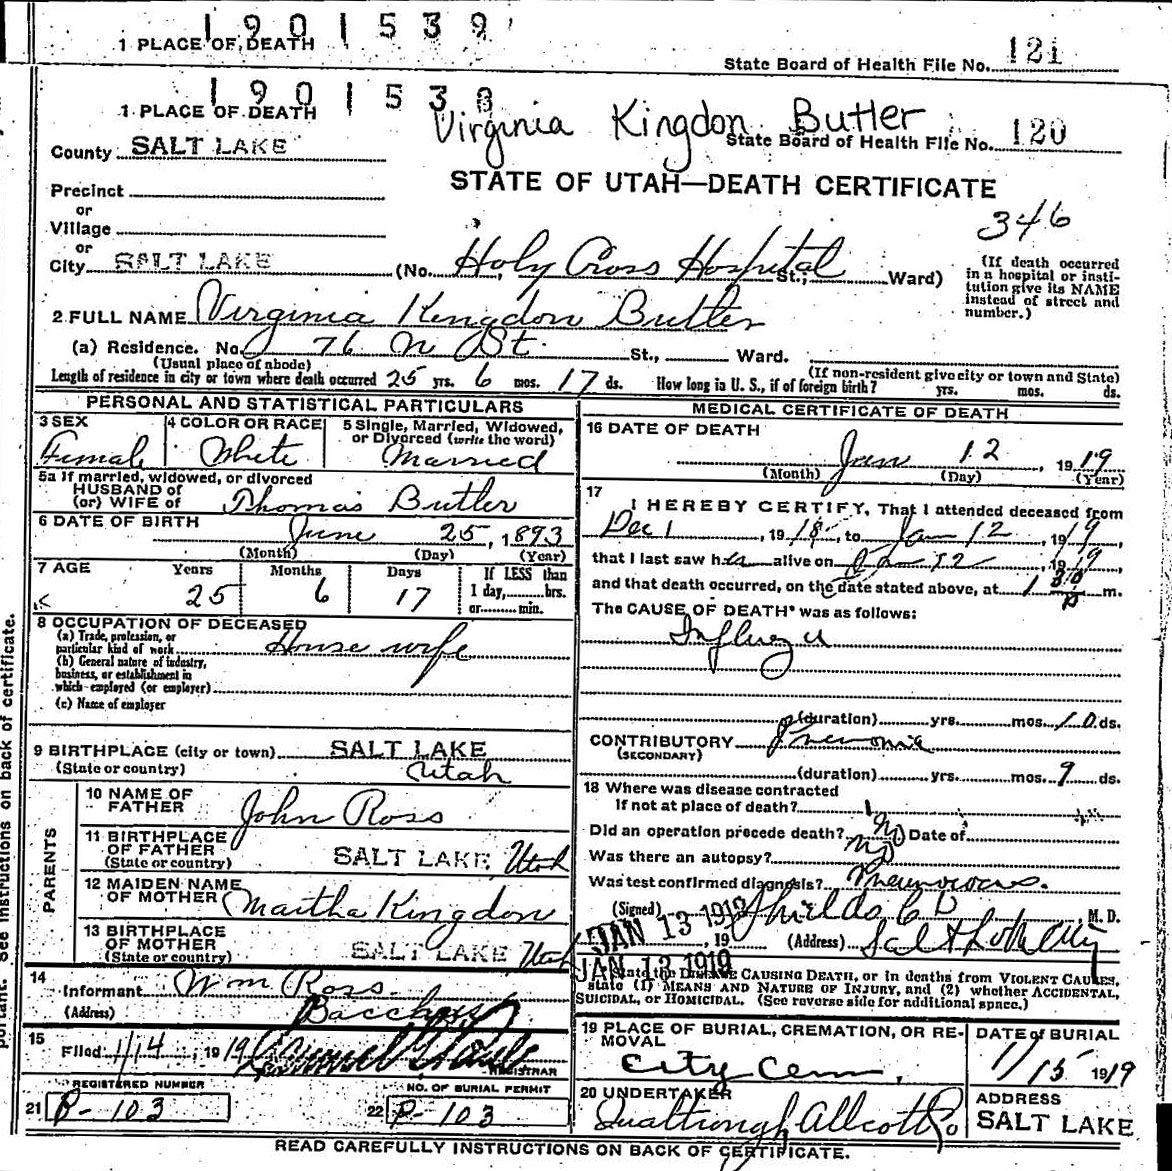 1901539
1 PLACE OF DEATH
State Board of Health File No. 121
1901538
1 PLACE OF DEATH
Virginia Kingdon Butler
County SALT LAKE
State Board of Health File No. 120
STATE OF UTAH—DEATH CERTIFICATE
Precinct
or
Village
346
or
City SALT LAKE (No. Holy Cross Hospital St.; Ward)
(If death occurred in a hospital or institution give its NAME instead of street and number.)
2 FULL NAME Virginia Kingdon Butler
(a) Residence. No. 76 N St. St., Ward.
(Usual place of abode) (If non-resident give city or town and State)
Length of residence in city or town where death occurred 25 yrs. 6 mos. 17 ds. How long in U. S., if of foreign birth? yrs. mos. ds.
PERSONAL AND STATISTICAL PARTICULARS
3 SEX Female
4 COLOR OR RACE White
5 Single, Married, Widowed, or Divorced (write the word) Married
5a If married, widowed, or divorced
HUSBAND of
(or) WIFE of Thomas Butler
6 DATE OF BIRTH June 25, 1893
(Month) (Day) (Year)
7 AGE Years 25 Months 6 Days 17 If LESS than 1 day, hrs. or min.
8 OCCUPATION OF DECEASED
(a) Trade, profession, or particular kind of work House wife
(b) General nature of industry, business, or establishment in which employed (or employer)
(c) Name of employer
9 BIRTHPLACE (city or town) SALT LAKE
(State or country) Utah
PARENTS
10 NAME OF FATHER John Ross
11 BIRTHPLACE OF FATHER (State or country) SALT LAKE Utah
12 MAIDEN NAME OF MOTHER Martha Kingdon
13 BIRTHPLACE OF MOTHER (State or country) SALT LAKE Utah
14 Informant Wm Ross
(Address) Bacchus
15 Filed 1/14, 1919
REGISTRAR
REGISTERED NUMBER
21 P-103
NO. OF BURIAL PERMIT
22 P-103
MEDICAL CERTIFICATE OF DEATH
16 DATE OF DEATH
Jan 12, 1919
(Month) (Day) (Year)
17 I HEREBY CERTIFY, That I attended deceased from
Dec 1, 1918, to Jan 12, 1919,
that I last saw her alive on Jan 12, 1919,
and that death occurred, on the date stated above, at 1 30 p m.
The CAUSE OF DEATH* was as follows:
Influenza
(duration) yrs. mos. 10 ds.
CONTRIBUTORY Pneumonia
(SECONDARY)
(duration) yrs. mos. 9 ds.
18 Where was disease contracted
If not at place of death?
Did an operation precede death? No Date of
Was there an autopsy? No
Was test confirmed diagnosis? Pneumococus.
(Signed) Shields C D M. D.
JAN 13 1919, 19 (Address) Salt Lake City
JAN 13 1919
*State the DISEASE CAUSING DEATH, or in deaths from VIOLENT CAUSES, state (1) MEANS AND NATURE OF INJURY, and (2) whether ACCIDENTAL, SUICIDAL, or HOMICIDAL. (See reverse side for additional space.)
19 PLACE OF BURIAL, CREMATION, OR REMOVAL
City Cem.
DATE of BURIAL
1/15 1919
20 UNDERTAKER
ADDRESS
SALT LAKE
READ CAREFULLY INSTRUCTIONS ON BACK OF CERTIFICATE.
portant. See instructions on back of certificate.